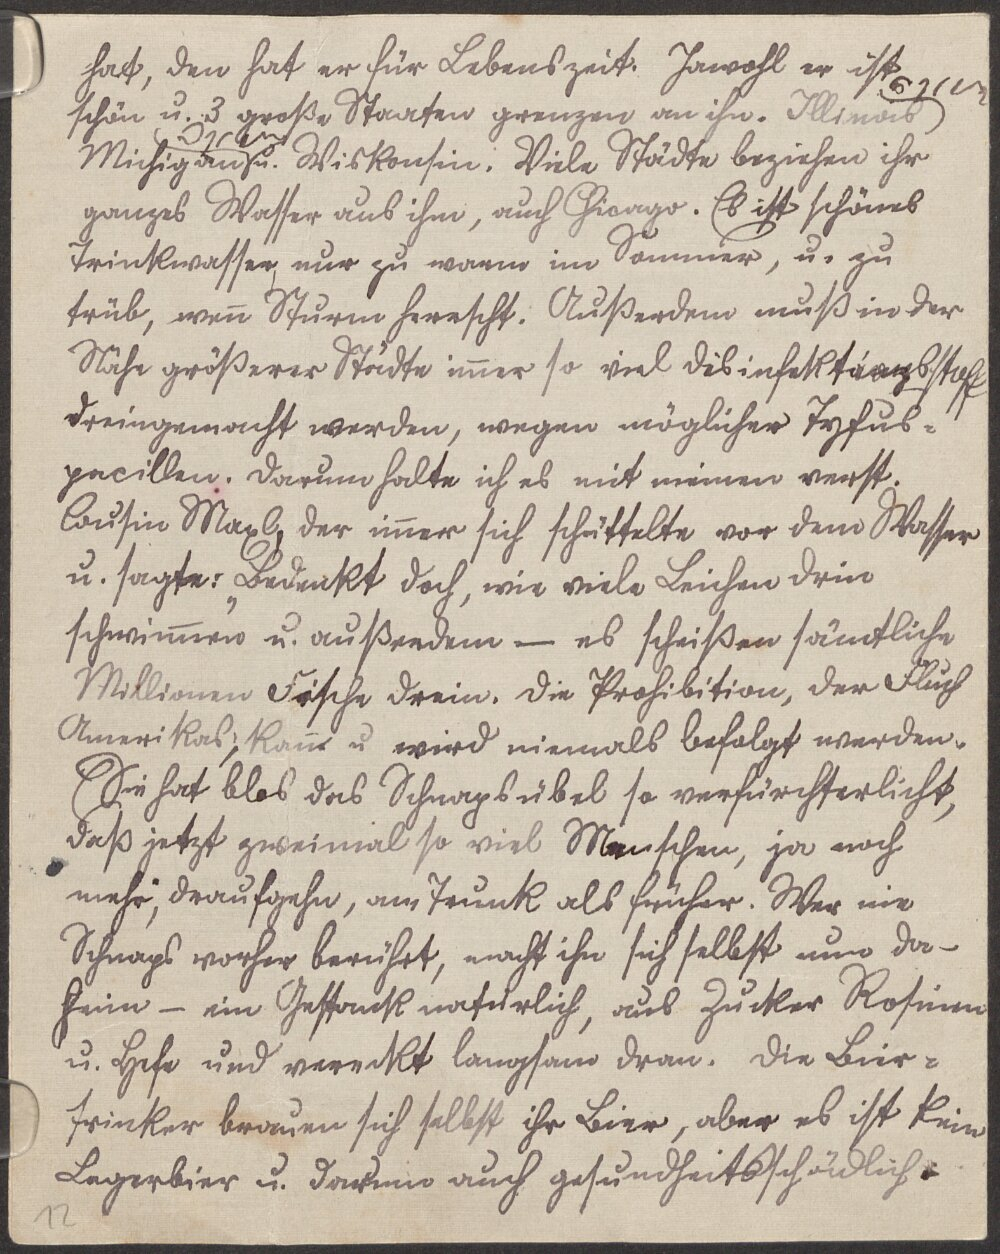 hat, den hat er für Lebenszeit. Jawohl er ist
schön u. 3 große Staaten grenzen an ihn. Illinois
Michigan u. Wiskonsin. Viele Städte beziehen ihr
ganzes Wasser aus ihm, auch Chicago. Es ist schönes
Trinkwasser, nur zu warm im Sommer, u. zu
trüb, wen̄ Sturm herrscht. Außerdem muß in der
Nähe größerer Städte im̄er so viel Disinfektionsstoff
dreingemacht werden, wegen möglicher Tyfus-
pacillen. Darum halte ich es mit meinen verst.
Cousin Maxl, der im̄er sich schüttelte vor dem Wasser
u. sagte: „Bedenkt doch, wie viele Leichen drin
schwim̄en u. außerdem — es scheißen sämtliche
Millionen Fische drein. Die Prohibition, der Fluch
Amerikas, kan̄ u wird niemals befolgt werden.
Sie hat blos das Schnapsübel so verfürchterlicht,
daß jetzt zweimal so viel Menschen, ja noch
mehr, draufgehn, am Trunk als früher. Wer nie
Schnaps vorher berührt, macht ihn sich selbst nun da-
heim — ein Gestank natürlich, aus Zucker Rosinen
u. Hefe und verreckt langsam dran. Die Bier-
trinker brauen sich selbst ihr Bier, aber es ist kein
Lagerbier u. darum auch gesundheitsschädlich.
12